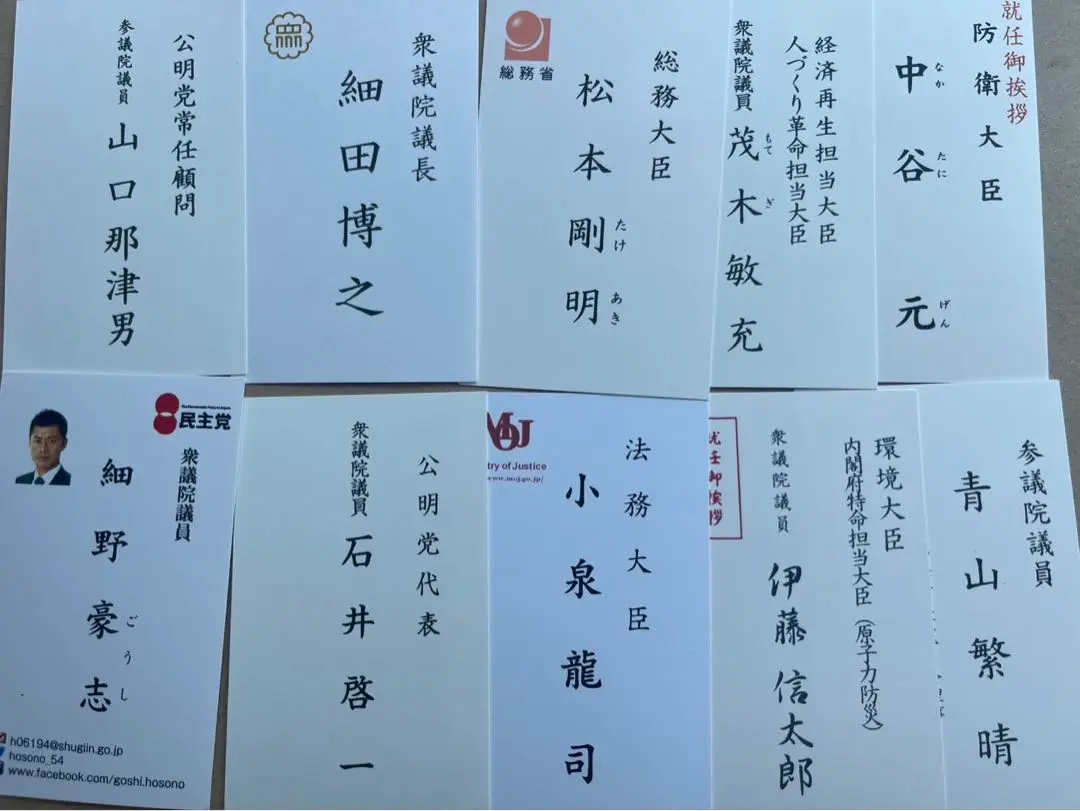 公明党常任顧問
参議院議員 山口那津男
衆議院議長
細田博之
総務省
総務大臣
たけ あき
松本剛明
経済再生担当大臣
人づくり革命担当大臣
もて ぎ
衆議院議員 茂木敏充
就任御挨拶
防衛大臣
なか たに げん
中谷元
民主党
衆議院議員
ごうし
細野豪志
h06194@shugiin.go.jp
hosono_54
www.facebook.com/goshi.hosono
公明党代表
衆議院議員 石井啓一
MOJ
stry of Justice
www.moj.go.jp/
法務大臣
小泉龍司
就任御挨拶
環境大臣
内閣府特命担当大臣（原子力防災）
衆議院議員
伊藤信太郎
参議院議員
青山繁晴